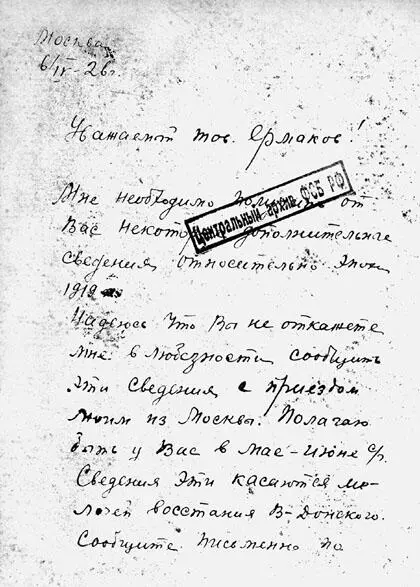 Москва
6/IV - 26 г.
Уважаемый тов. Ермаков!
Мне необходимо получить от
Вас некоторые дополнительные
сведения относительно эпохи
1919 г.
Надеюсь, что Вы не откажете
мне в любезности сообщить
эти сведения с приездом
моим из Москвы. Полагаю
быть у Вас в мае-июне с/г.
Сведения эти касаются ме-
лочей восстания В-Донского.
Сообщите письменно по
Центральный архив ФСБ РФ